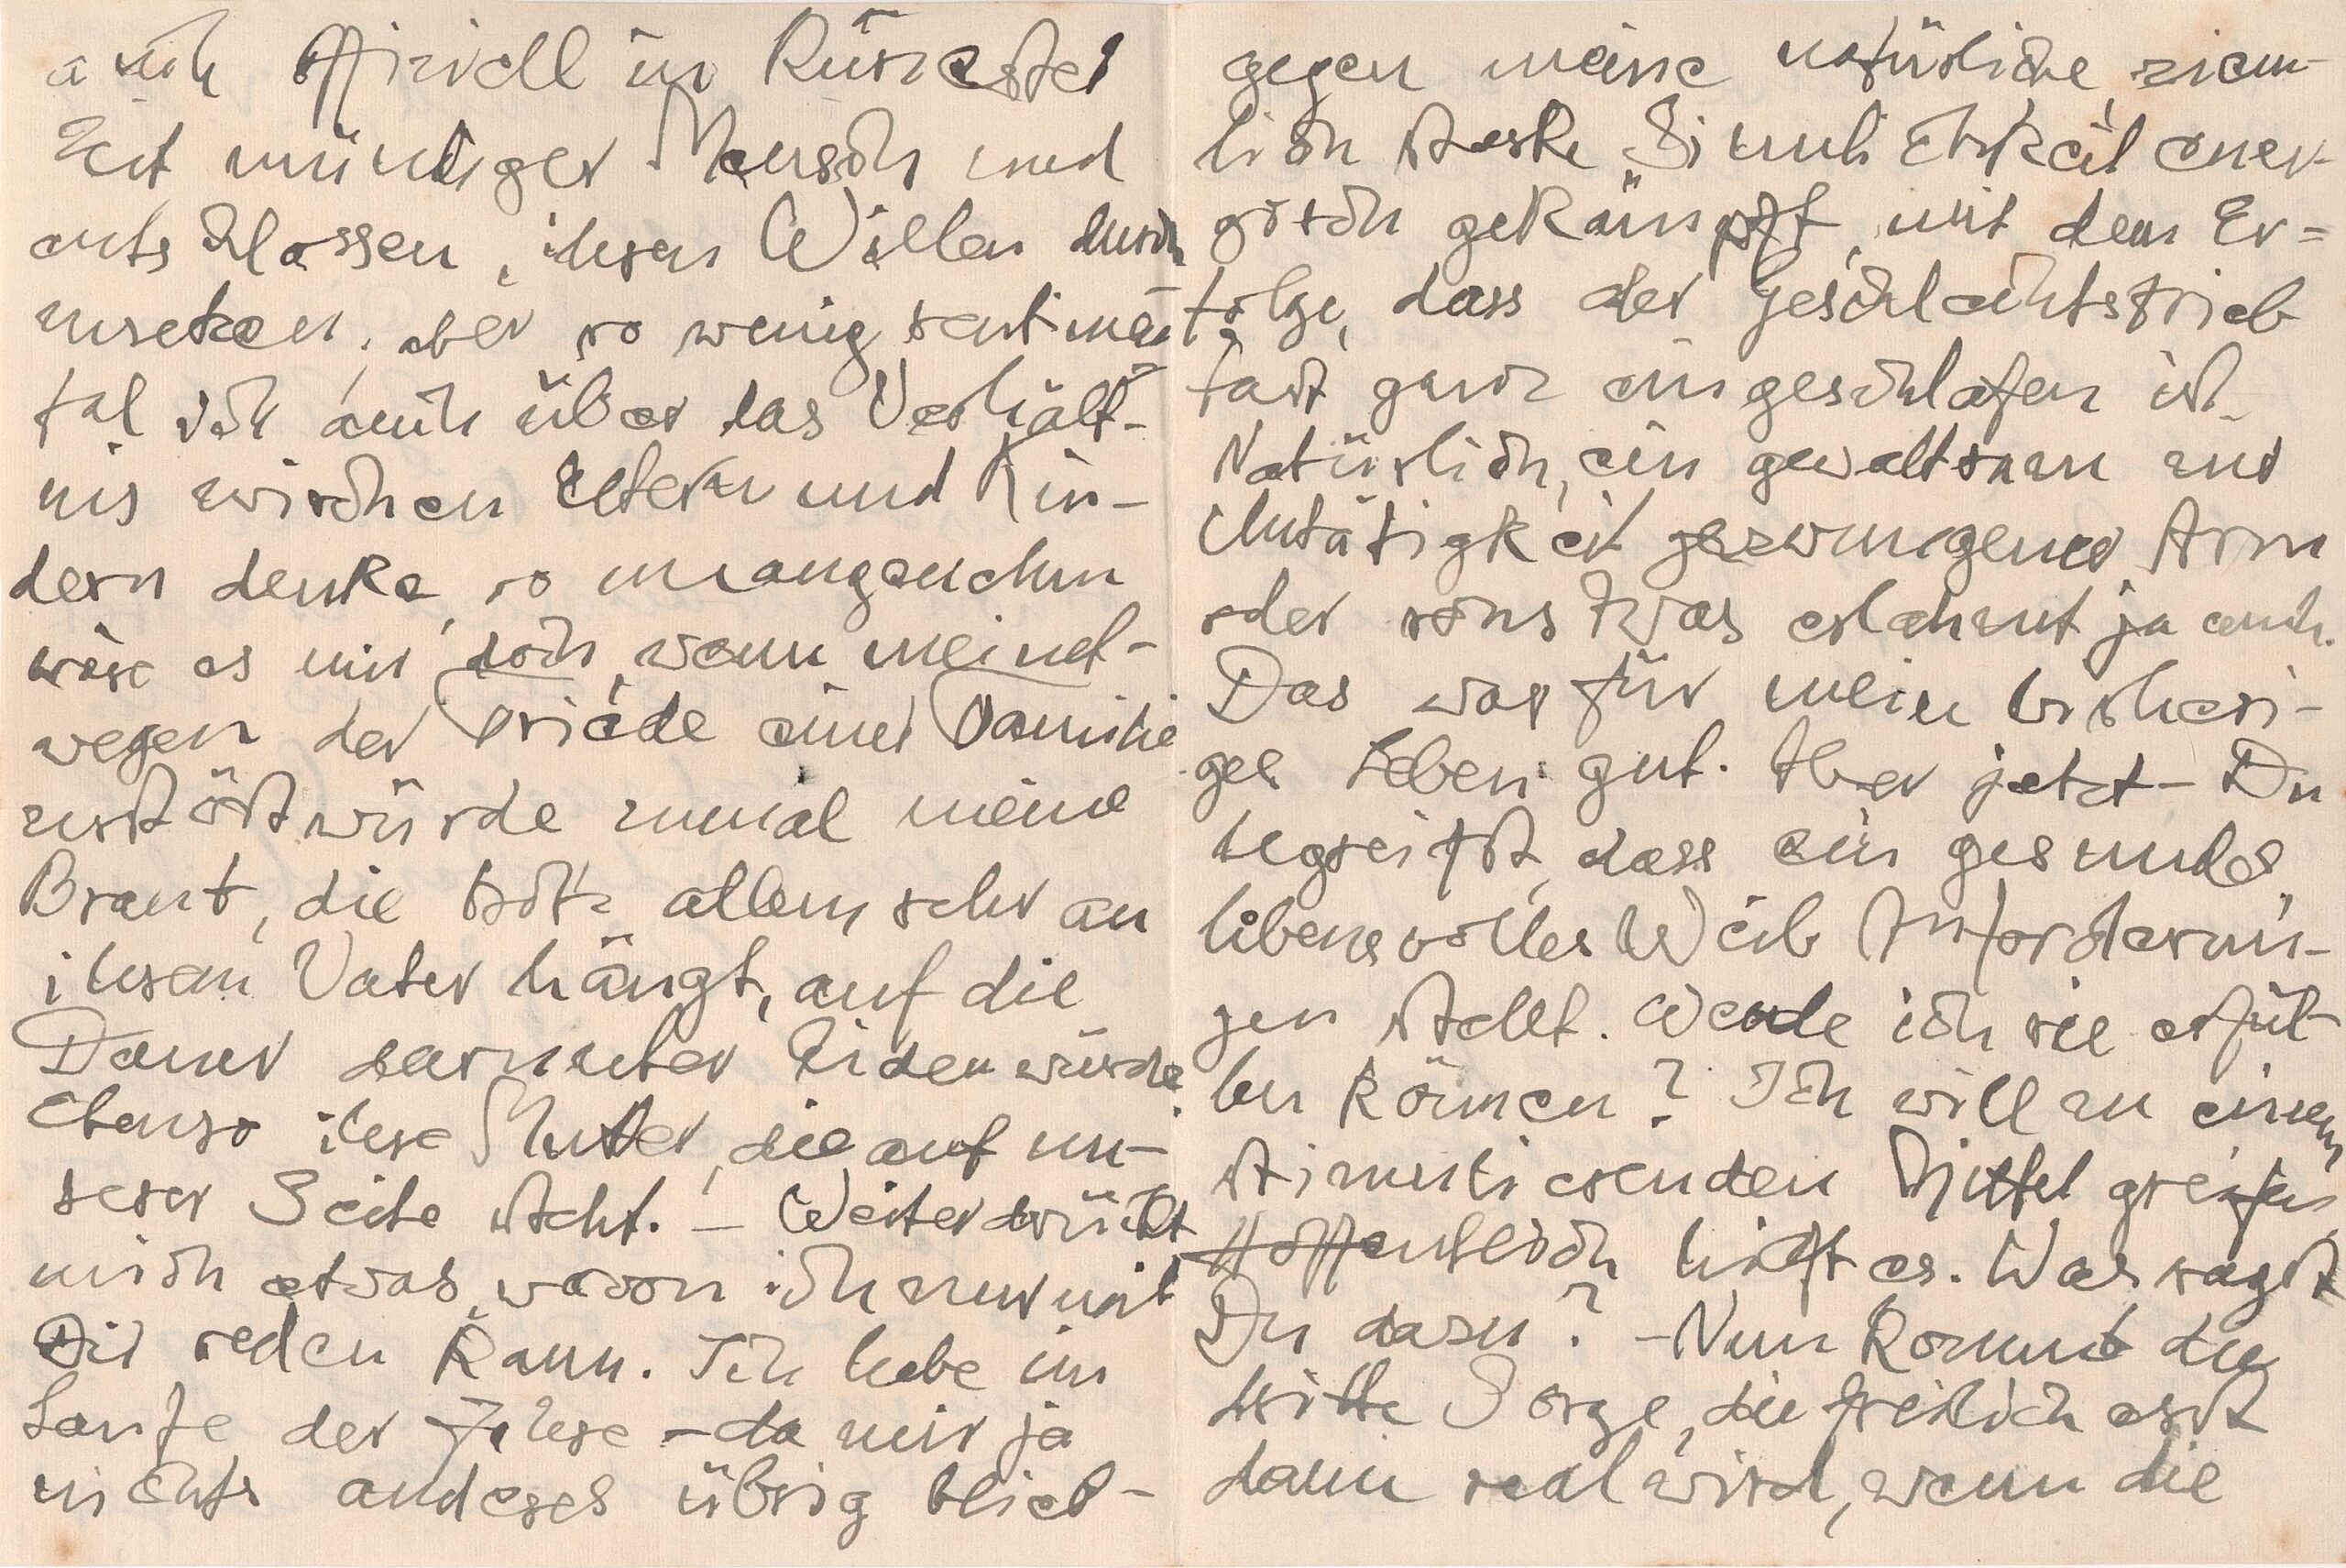 auch offiziell in kürzester
Zeit mündiger Mensch und
entschlossen, ihren Willen durch
zusetzen, aber so wenig sentimen
tal ich auch über das Verhält-
nis zwischen Eltern und Kin-
dern denke, so unangenehm
wäre es mir doch, wenn meinet-
wegen der Friede einer Familie
zerstört würde zumal meine
Braut, die trotz allem sehr an
ihrem Vater hängt, auf die
Dauer darunter leiden würde,
ebenso ihre Mutter, die auf un-
serer Seite steht. – Weiter drückt
mich etwas, wovon ich nur mit
Dir reden kann. Ich habe im
Laufe der Jahre – da mir ja
nichts anderes übrig blieb –
gegen meine natürliche, ziem-
lich starke Sinnlichkeit ener-
gisch gekämpft, mit dem Er=
folge, dass der Geschlechtstrieb
fast ganz eingeschlafen ist.
Natürlich, ein gewaltsam zur
Untätigkeit gezwungener Arm
oder sonstwas erlahmt ja auch.
Das war für mein bisheri-
ges Leben gut. Aber jetzt – Du
begreifst, dass ein gesundes
lebensvolles Weib Anforderun-
gen stellt. Werde ich sie erfül-
len können? Ich will zu einem
stimulierenden Mittel greifen
Hoffentlich hilft es. Was sagst
Du dazu? – Nun kommt die
dritte Sorge, die freilich erst
dann real wird, wenn die